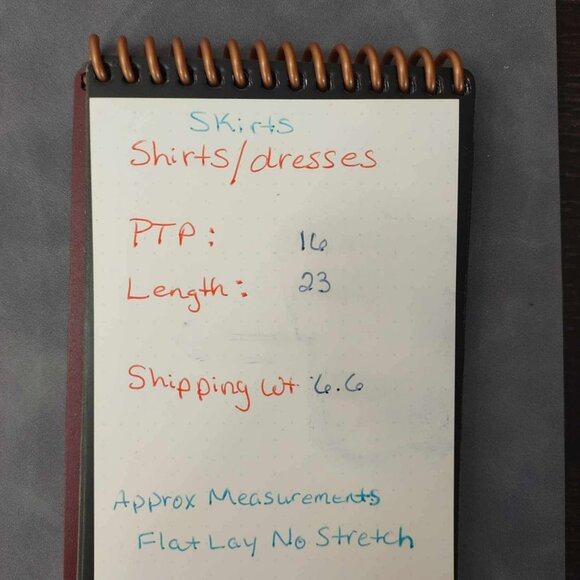 Skirts
Shirts/dresses
PTP: 16
Length: 23
Shipping Wt 6.6
Approx Measurements
Flat Lay No Stretch